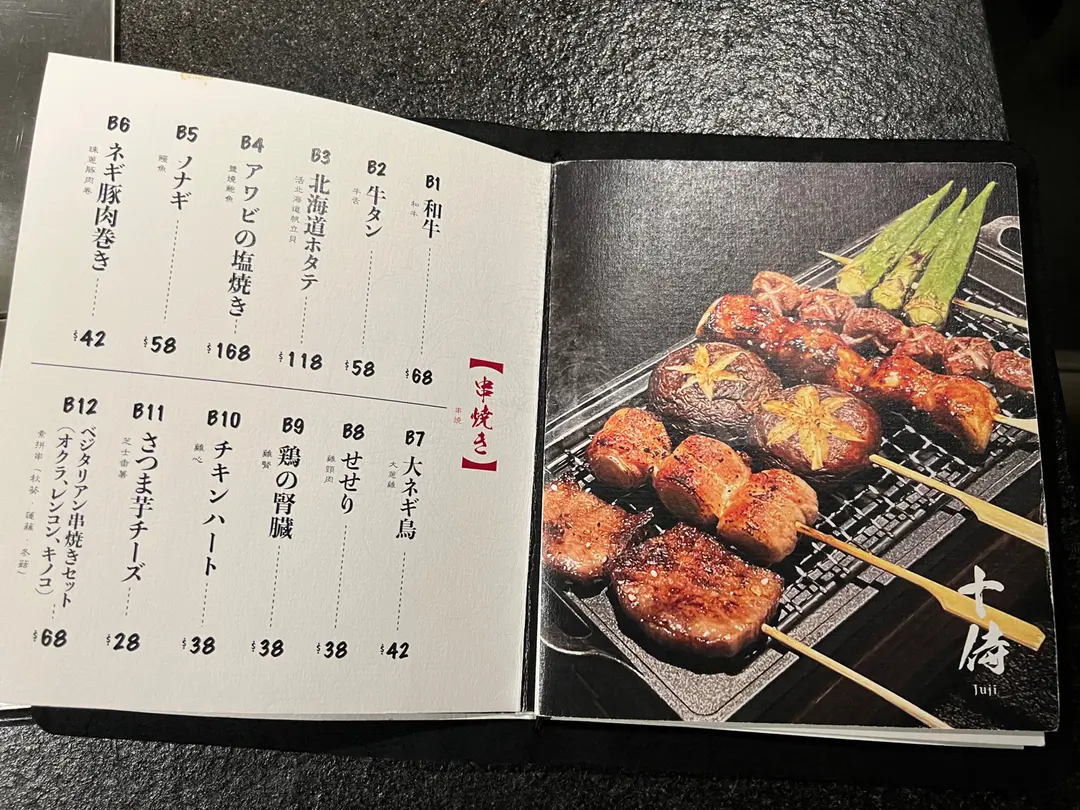 【串焼き】
串燒
B1 和牛
和牛
$68
B2 牛タン
牛舌
$58
B3 北海道ホタテ
活北海道帆立貝
$118
B4 アワビの塩焼き
鹽燒鮑魚
$168
B5 ソナギ
鰻魚
$58
B6 ネギ豚肉巻き
珠蔥豚肉卷
$42
B7 大ネギ鳥
大蔥雞
$42
B8 せせり
雞頸肉
$38
B9 鶏の腎臓
雞腎
$38
B10 チキンハート
雞心
$38
B11 さつま芋チーズ
芝士番薯
$28
B12 ベジタリアン串焼きセット
(オクラ、レンコン、キノコ)
素拼串(秋葵、蓮藕、冬菇)
$68
十侍
Juji